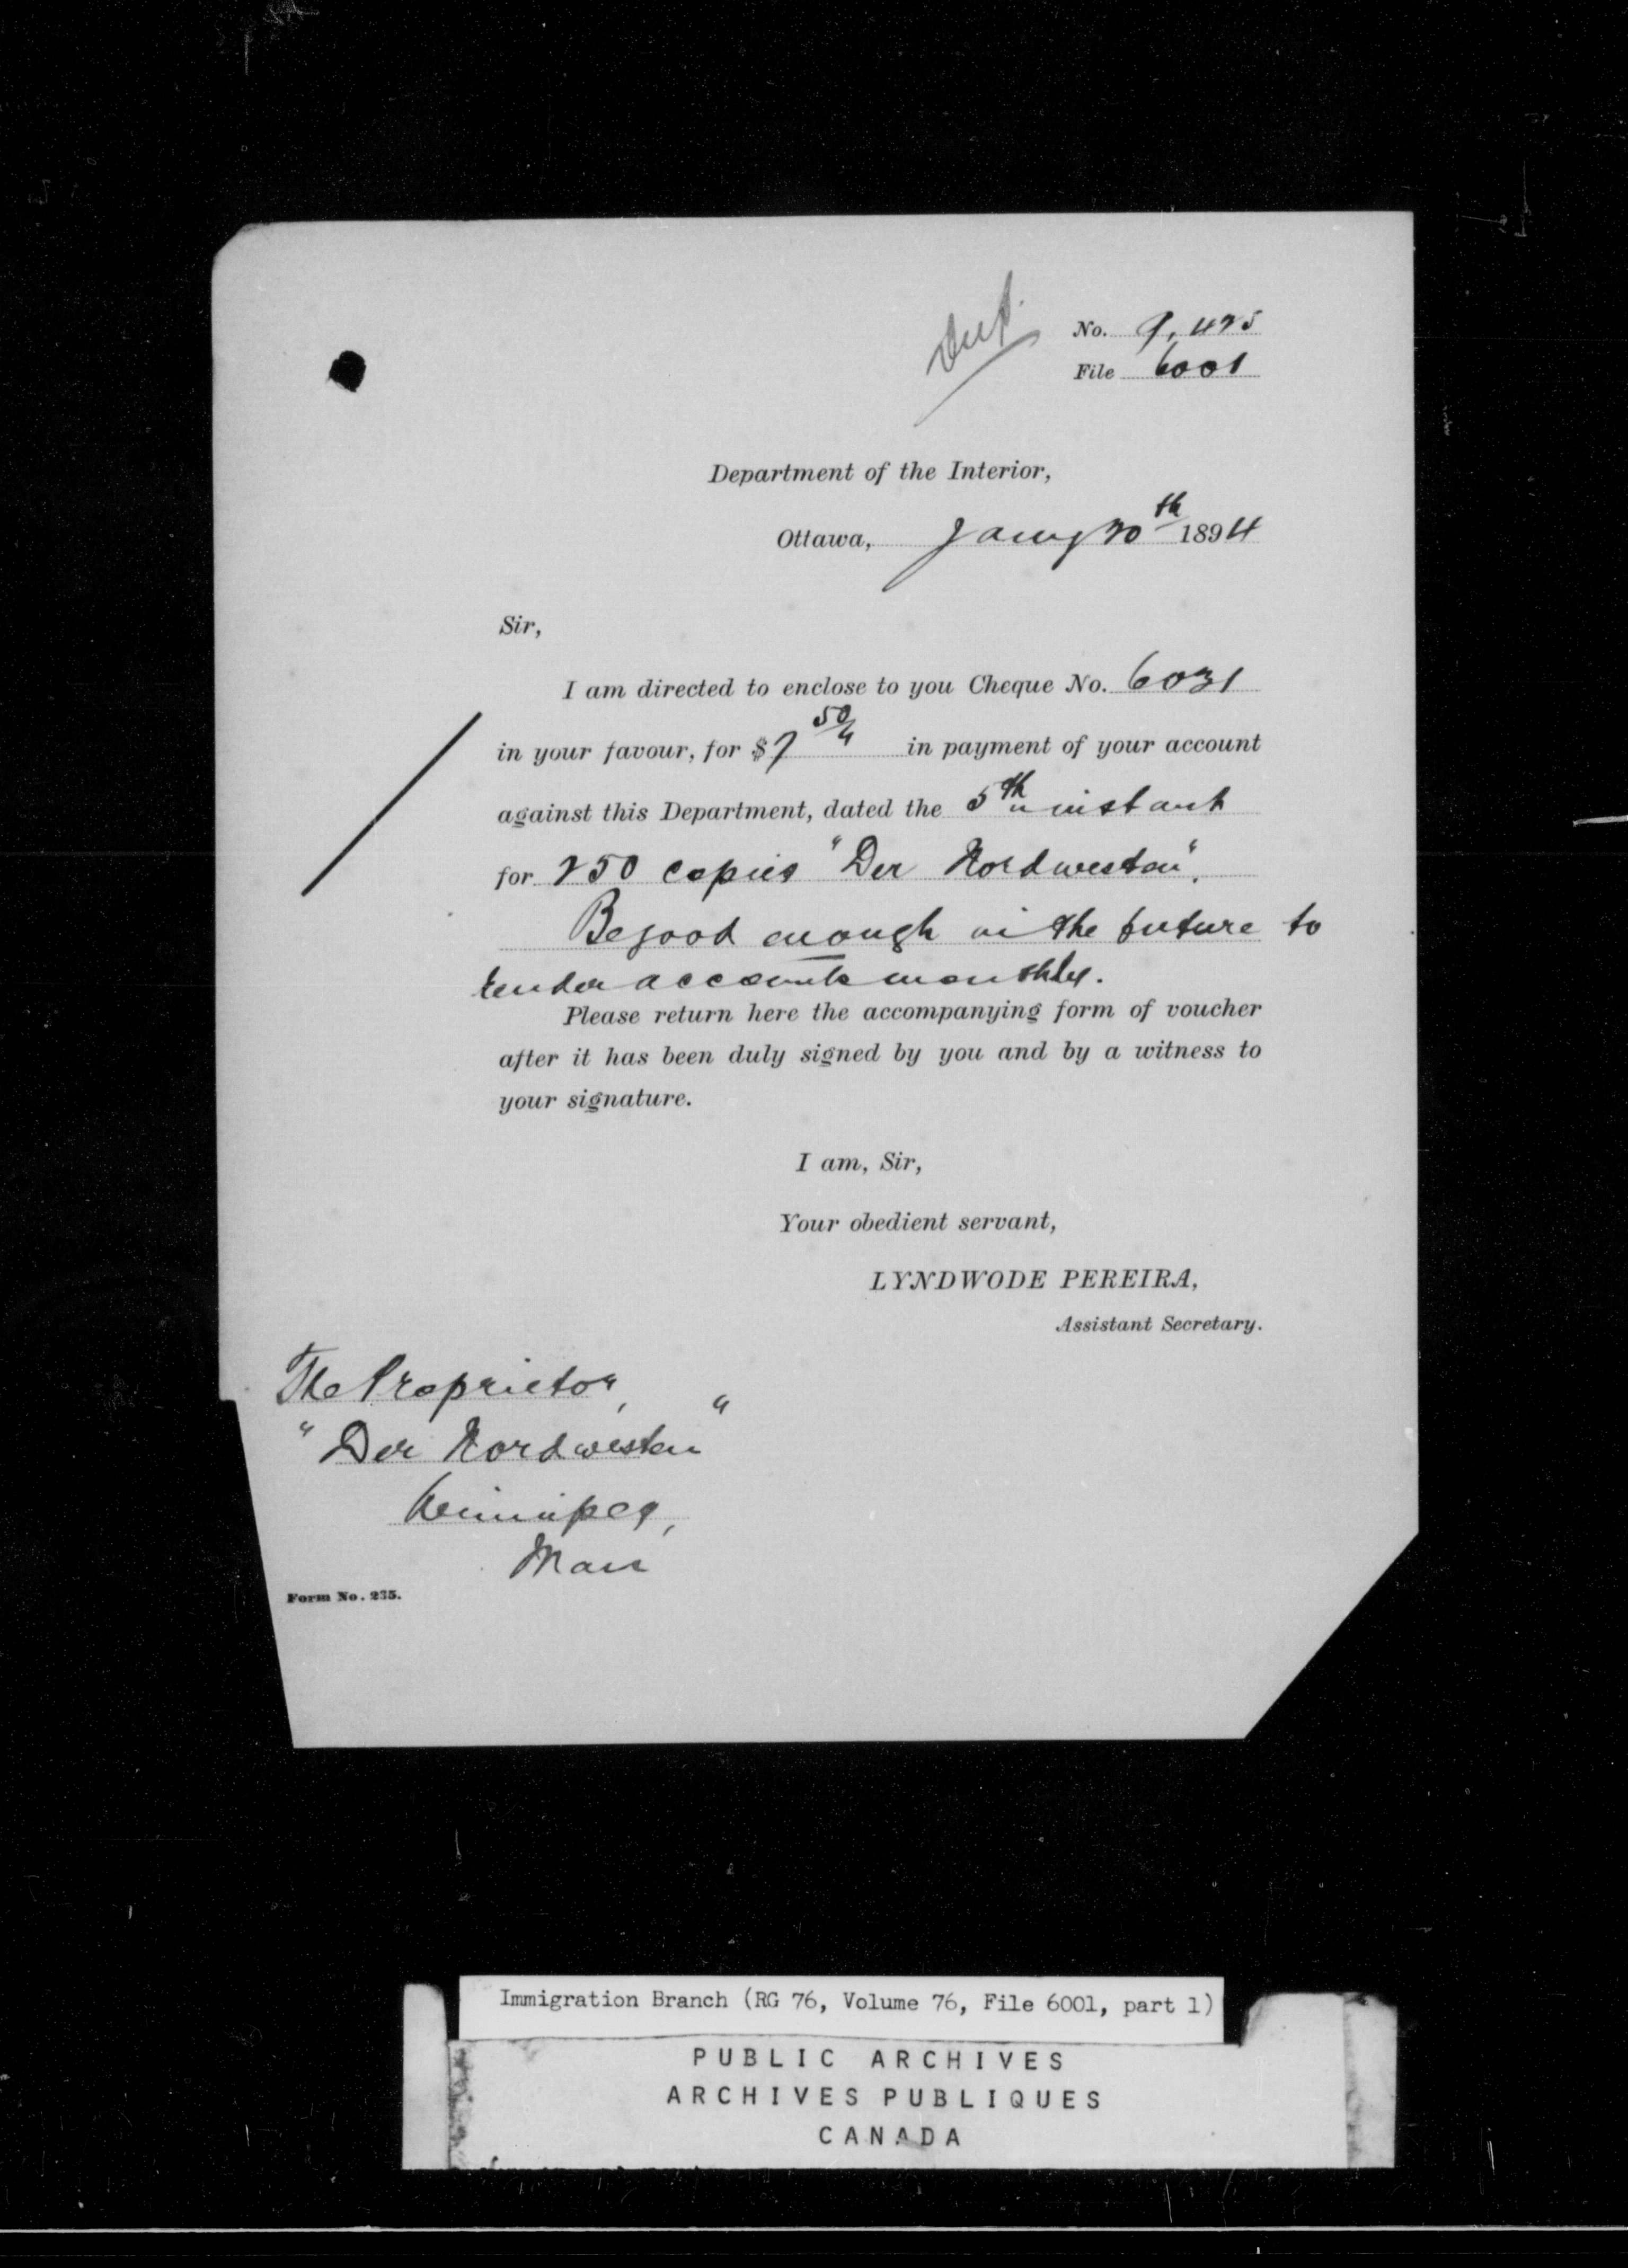 Dup.
No. 9,425
File 6001
Department of the Interior,
Ottawa, Jany 20th 1894
Sir,
I am directed to enclose to you Cheque No. 6031
in your favour, for $7 50/ in payment of your account
against this Department, dated the 5th instant
for 250 copies "Der Nordwesten".
Be good enough in the future to
render accounts monthly.
Please return here the accompanying form of voucher
after it has been duly signed by you and by a witness to
your signature.
I am, Sir,
Your obedient servant,
LYNDWODE PEREIRA,
Assistant Secretary.
The Proprietor,
"Der Nordwesten"
Winnipeg,
Man
Form No. 235.
Immigration Branch (RG 76, Volume 76, File 6001, part 1)
PUBLIC ARCHIVES
ARCHIVES PUBLIQUES
CANADA